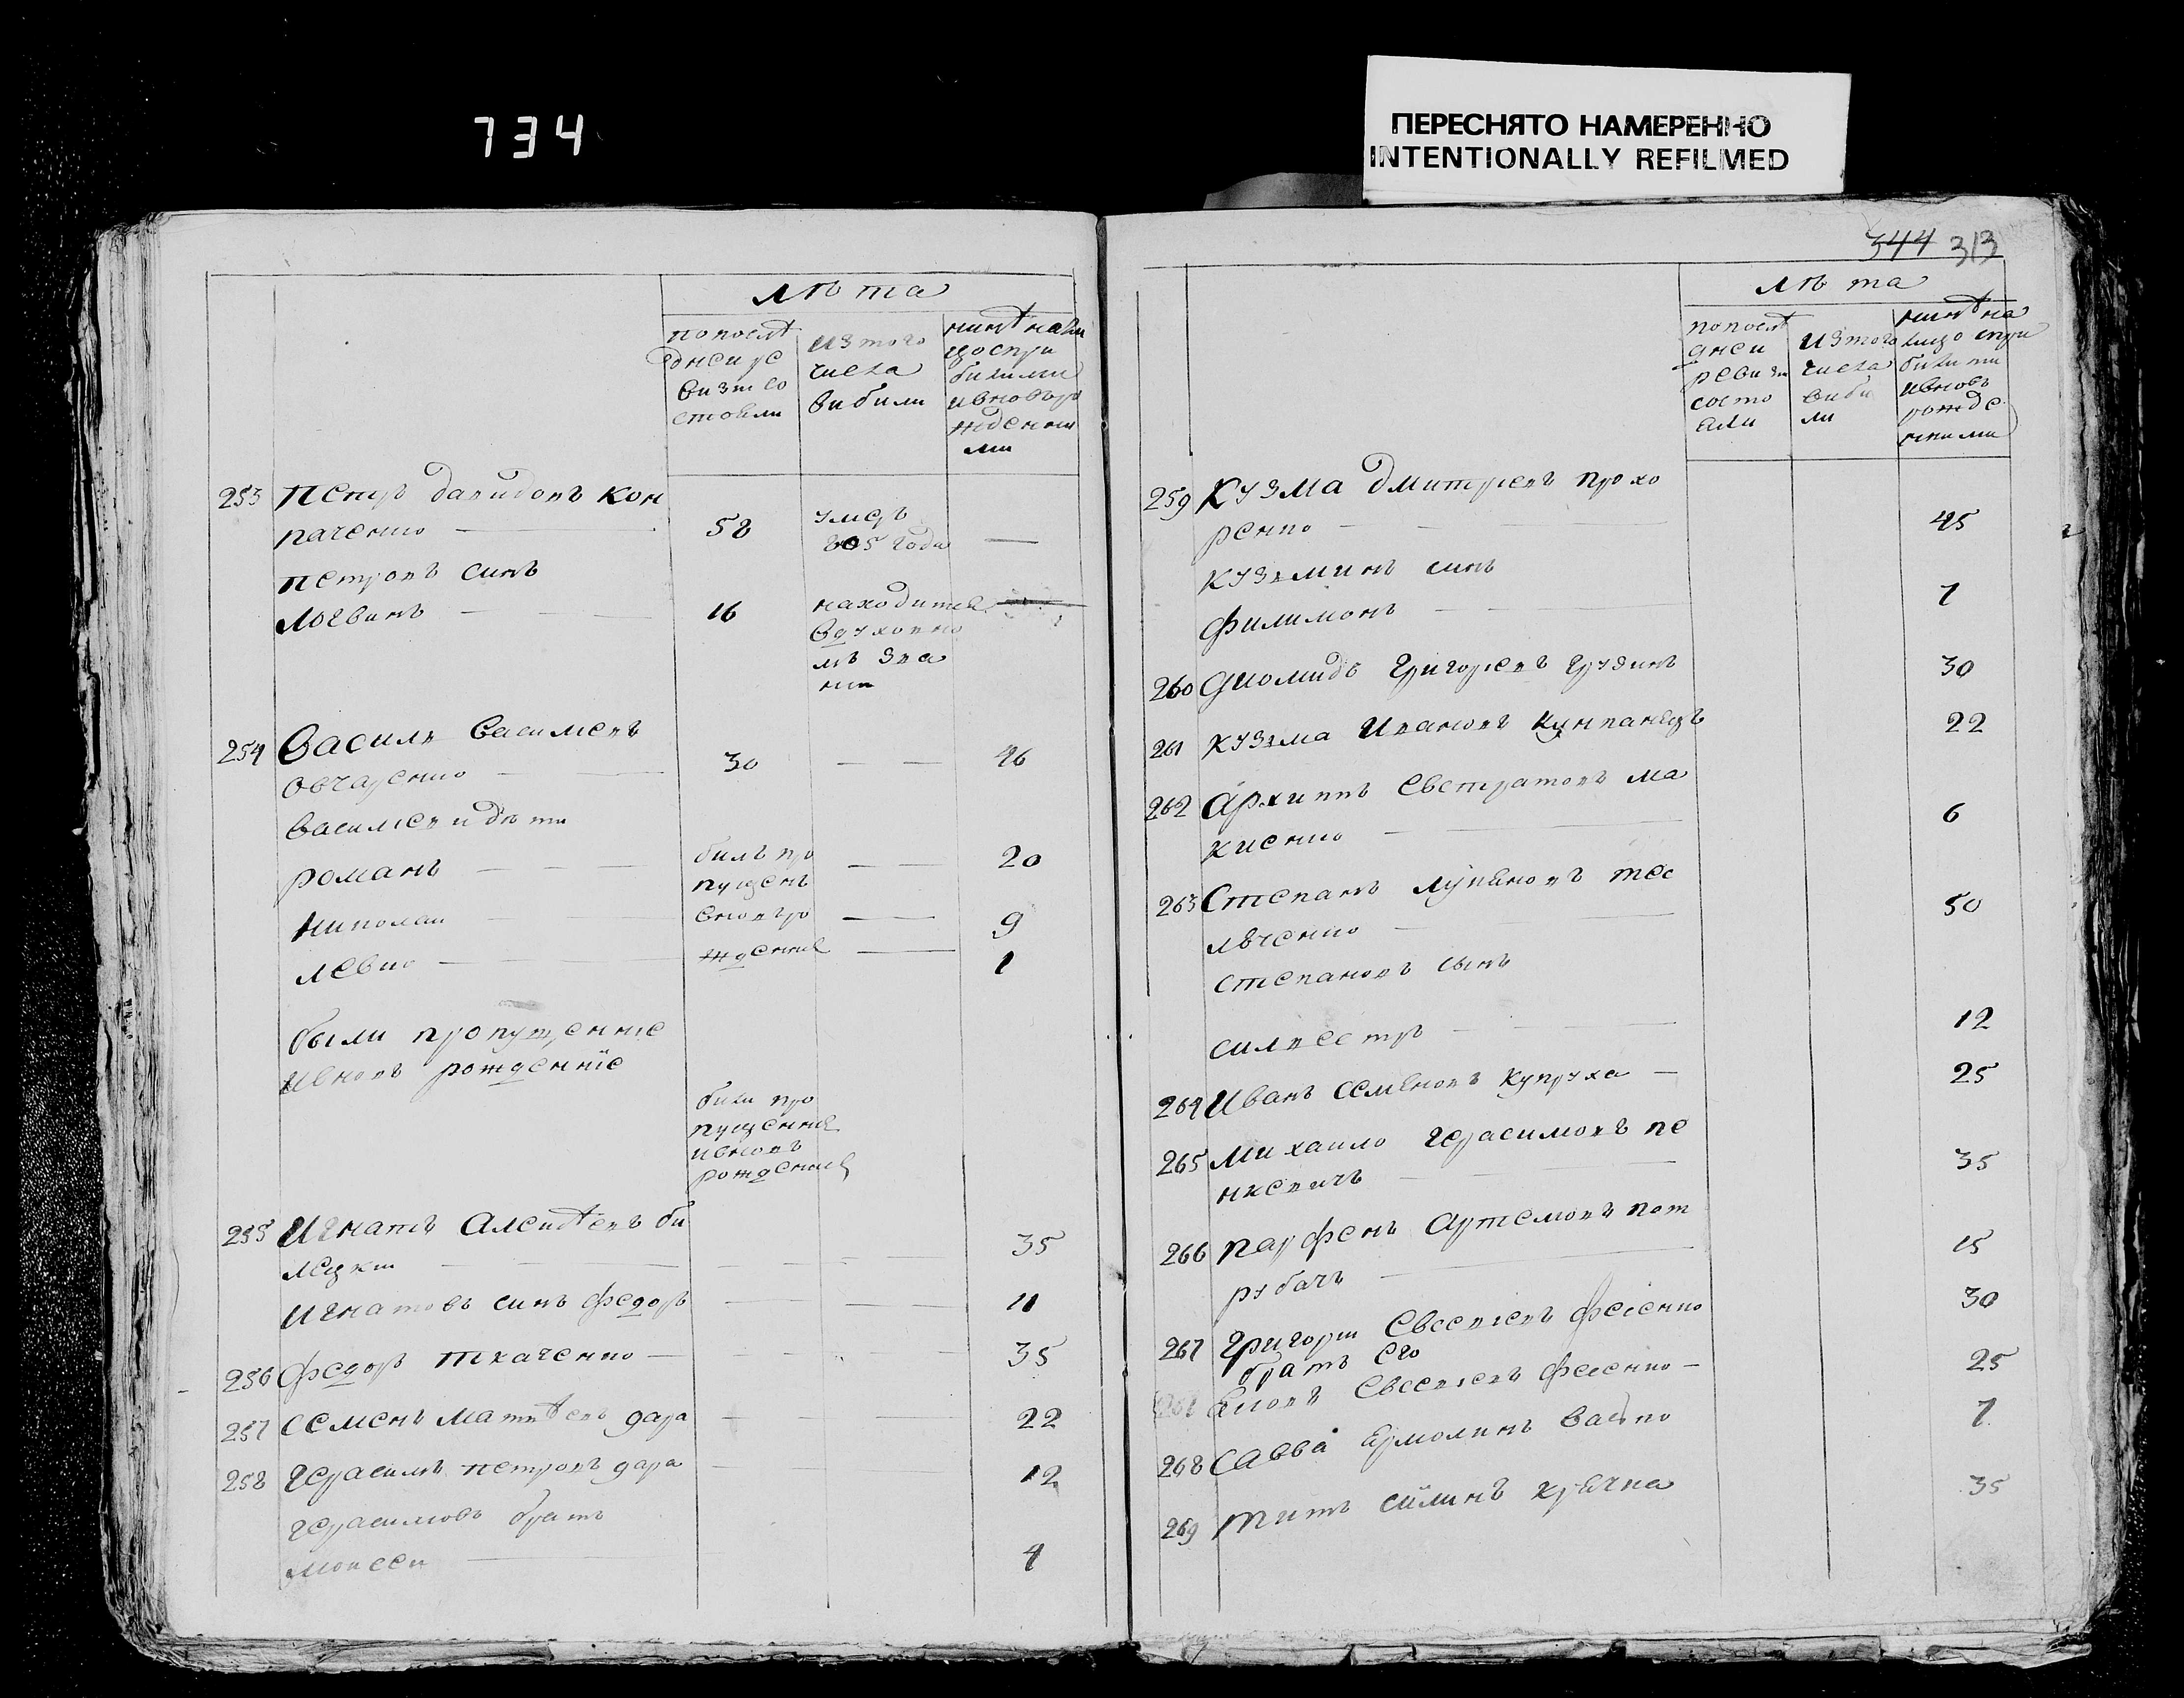 734
ПЕРЕСНЯТО НАМЕРЕННО
INTENTIONALLY REFILMED
лѣта
попослѣ
днеи ре
визіи со
стояли
изтого
числа
вибили
нинѣ нали
цоспри
билими
ивновьро
жденни
ми
253 Петръ давидовъ кон
раченко
58
умеръ
805 года
Петровъ синъ
Логвинъ
16
находится
вдуховно
мъ зва
нии
254 Василь Васильевъ
Овчаренко
30
46
Васильеви дѣти
романъ
билъ про
пущенъ
20
николаи
вновьро
9
левко
жденние
1
были пропущенніе
ивновъ рожденніе
били про
пущенние
ивновъ
рожденние
255 Игнатъ Алексѣевъ би
лецки
35
Игнатовъ синъ федоръ
11
256 федоръ ткаченко
35
257 Семенъ Матвѣевъ дара
22
258 Герасимъ петровъ дара
12
Герасимовъ братъ
моисеи
4
344 313
лѣта
попослѣ
днеи
ревизи
состо
яли
изтого
числа
виби
ли
нинѣ на
лицо спри
билими
ивновь
рожде
нними
259 Кузма дмитриевъ прохо
ренко
45
кузьминъ синъ
филимонъ
7
260 Диомидъ Григориевъ Грузинъ
30
261 кузьма Ивановъ кумпанецъ
22
262 Архипъ Евстратовъ ма
киенко
6
263 Степанъ лупяновъ тес
лѣченко
50
степановъ сынъ
сильвестръ
12
264 Иванъ Семеновъ купруха
25
265 михаило Герасимовъ не
нкевичъ
35
266 парфенъ Артемовъ кот
рубачъ
15
267 Григори Евсеевъ фесенко
30
братъ его
Евсеевъ фесенко
25
268 Савва Ермолинъ Васко
7
269 Титъ силинъ крячка
35